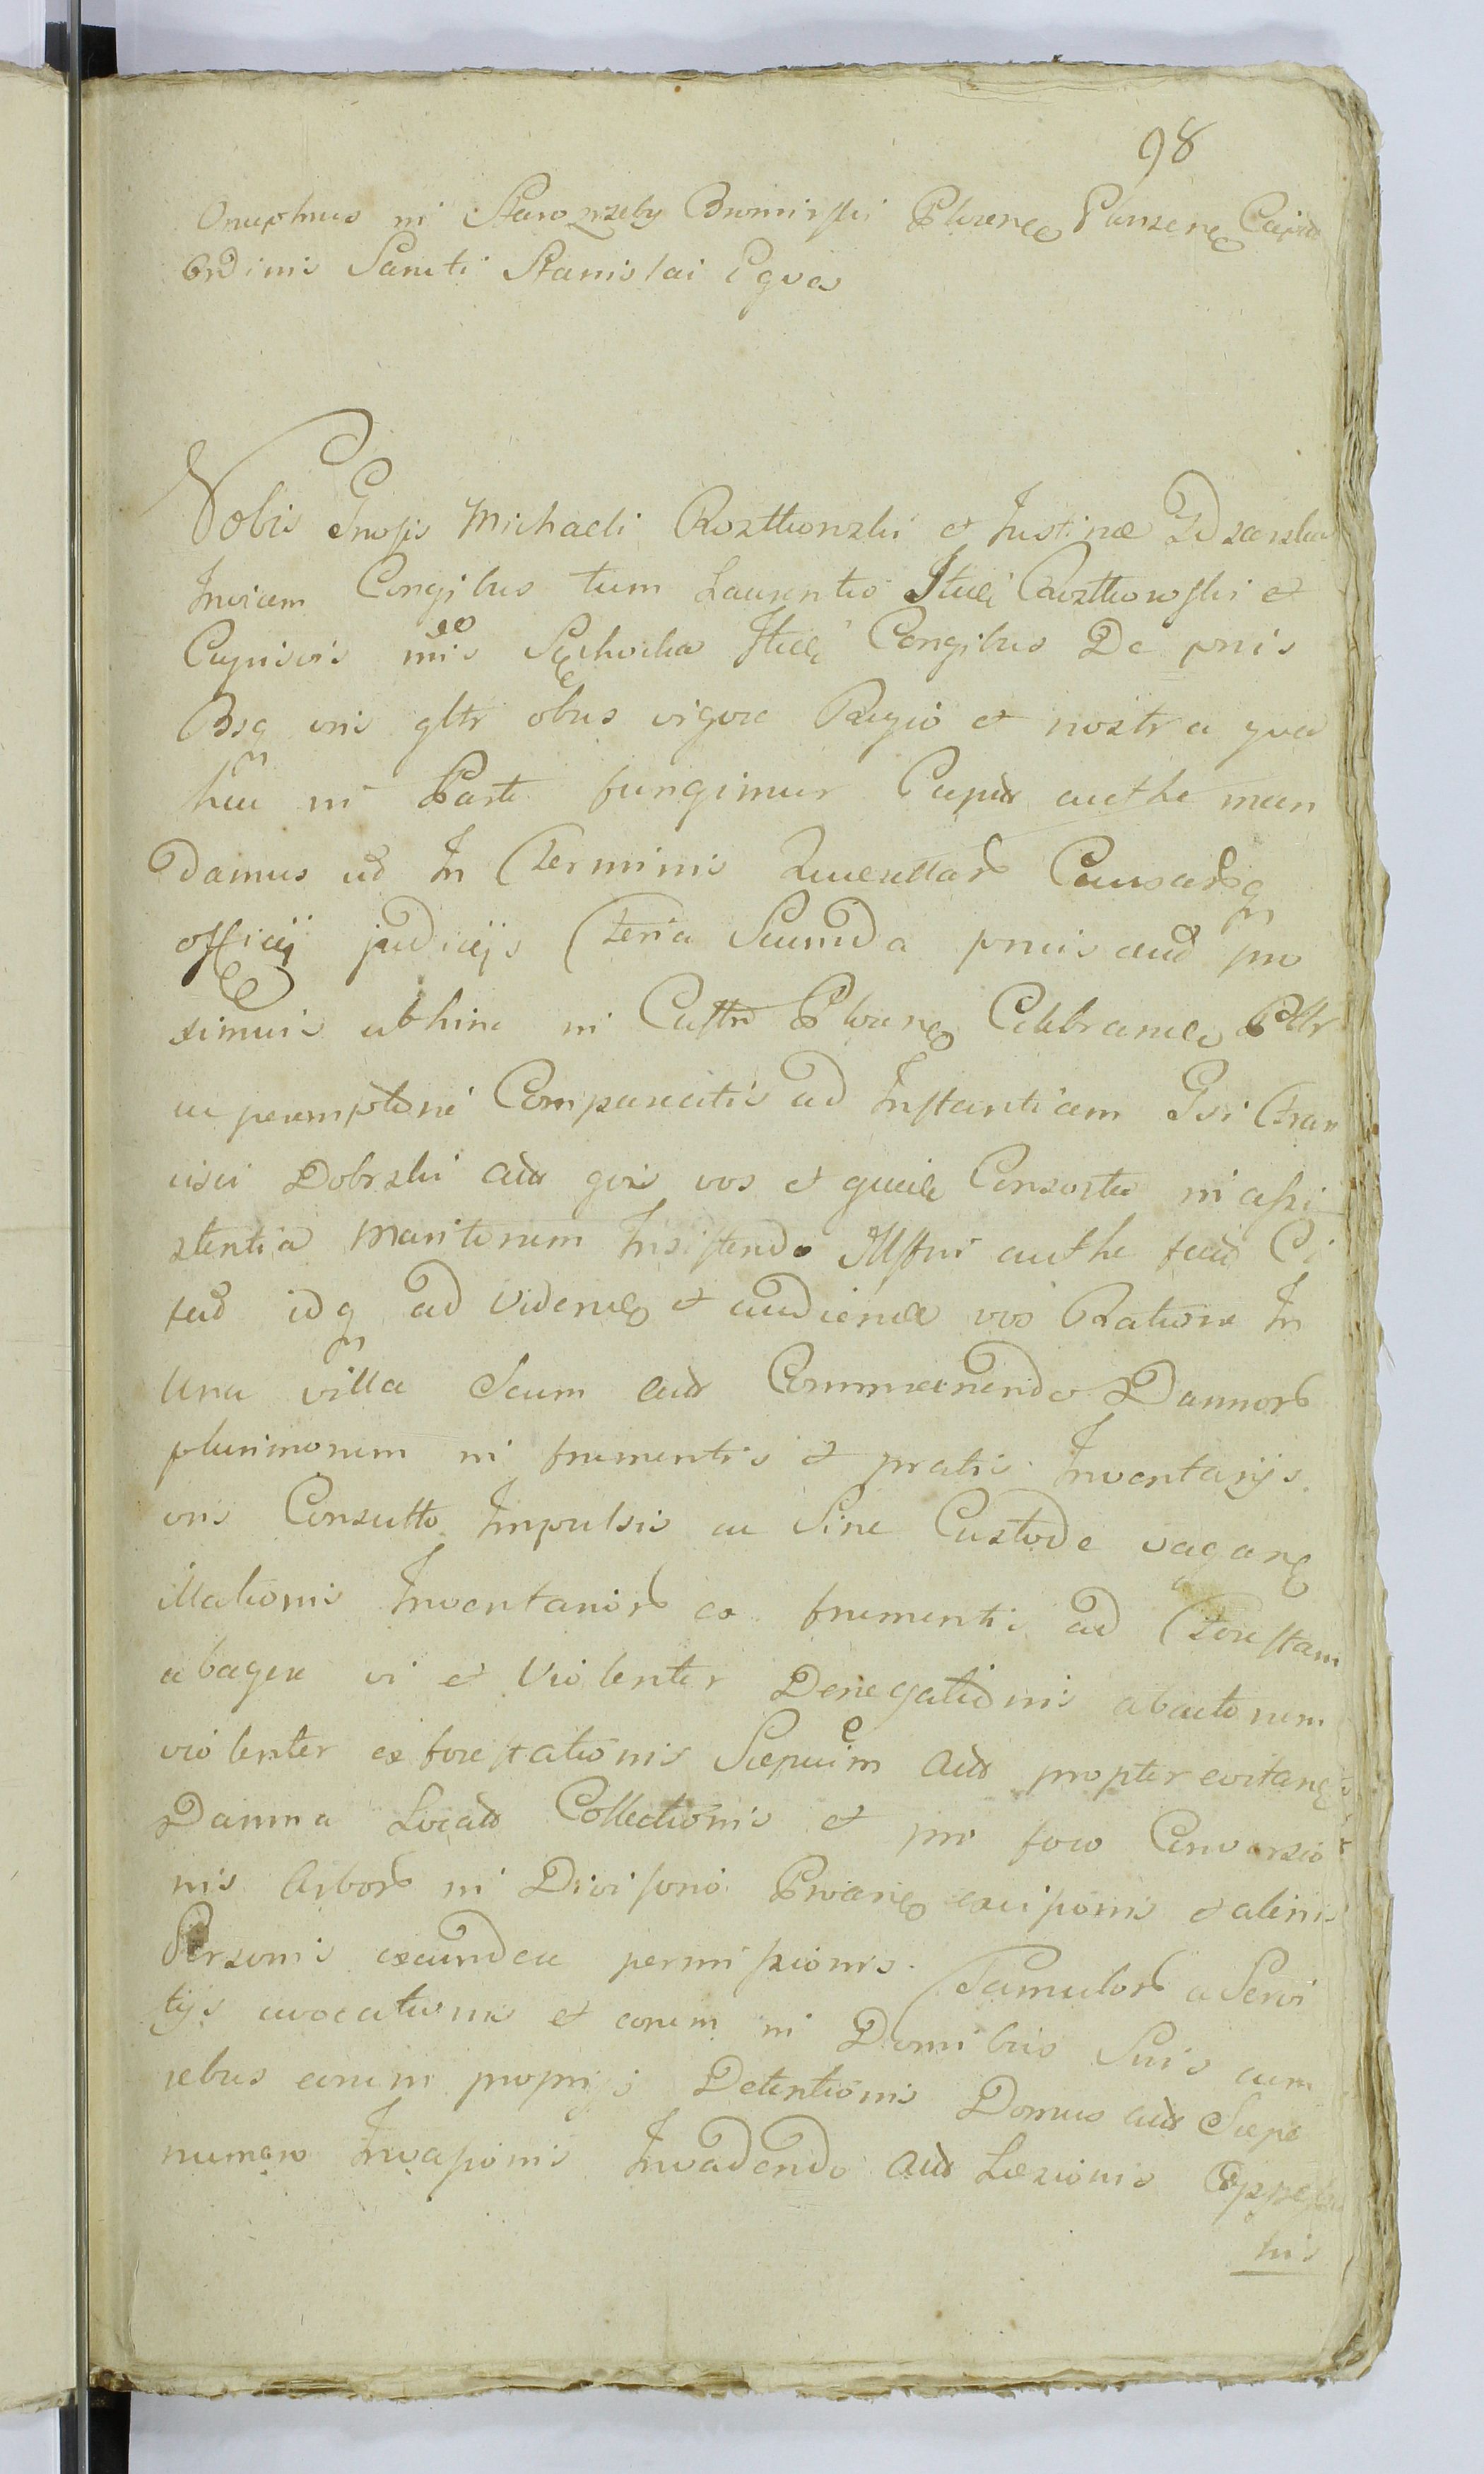 98
Onuphrius in Starozrzeby Bromirski Plocen Plonscen Capits
Ordinis Sancti Stanislai Eques
Vobis Gnosis Michaeli Rosttkowski et Justinæ Zdzarska
Invicem Congibus tum Laurentio Itidē Rosttkowski et
cujusvis nois Sochocka Itidē Congibus De psnis
Bsq vris gltr obus vigore Regio et nostra qua
hac in Parte fungimur Capits authe man
damus ut In Terminis Querellarō Causarōq
officij judicijs Feria Secunda pmis aud pro
ximis abhinc in Castro Plocen Celebrandis Pltr
ac peremptorie Compareatis ad Instantiam Gsi Fran
cisci Dobrski aās qvi vos et quidē Consortes in assi
stentia Maritorum Insistendo authe
idq ad Videndū et audiendū vos Ratione In
Una villa Secum aās Commanendo Damnorō
plurimorum in frumentis et pratis Inventarijs
vris Consulto Impulsis ac Sine Custode vagan
illationis Inventariorō ex frumentis ad Forestam
abagere vi et Violenter Denegationis abactorum
violenter exforestationis Sæpium aās propter evitan
Damna Locatō Collectionis et pro foco Conversio
nis Arborō in Divisorio Procan excisionis et alienis
Personis excindere permissionis. Famulorō a Servi
tijs avocationis et eorum in Domibus Suis cum
rebus eorum proprijs Detentionis Domus aās Sæpe
numero Invasionis Invadendo aās Læsionis
nis